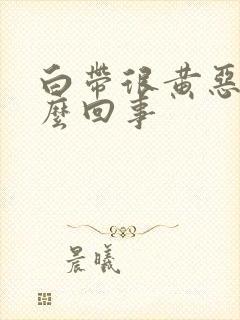 白帶很黄惡
麼回事
晨曦